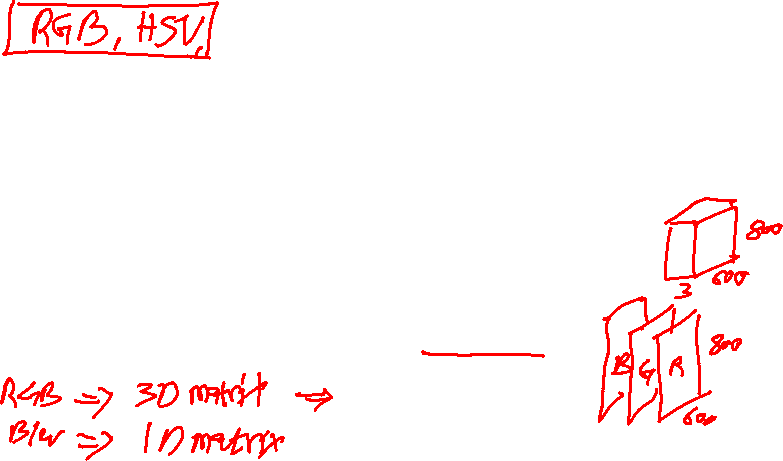 RGB, HSV,
800
600
3
B G R 800
600
RGB => 3D matrix →
B/w => 1D matrix